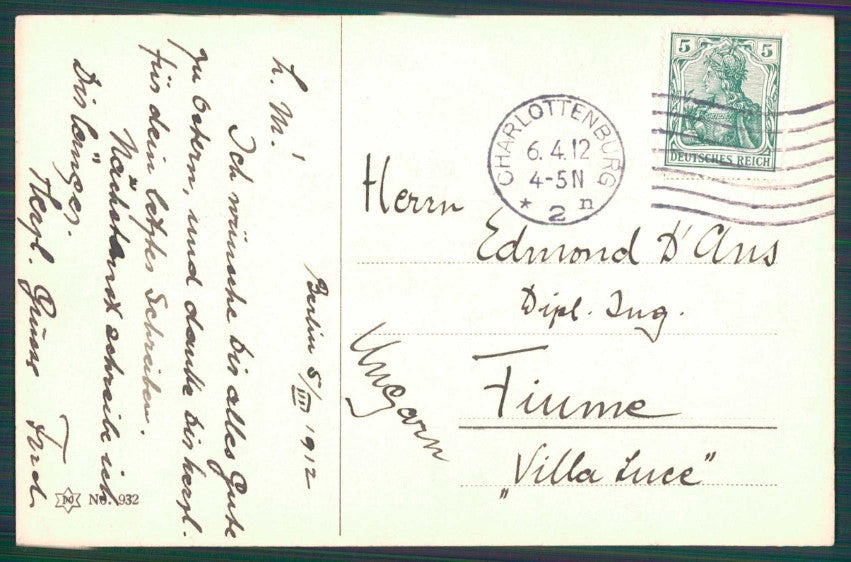 Berlin 5/ 1912
L. M.!
Ich wünsche dir alles Gute
zu Ostern, und danke dir herzl.
für dein letztes Schreiben.
schreibe ich
Dir länger.
Herzl. Grüsse
No. 932
5 5
DEUTSCHES REICH
CHARLOTTENBURG
6.4.12
4-5N
* 2 n
Herrn
Edmond D'Ans
Dipl. Ing.
Fiume
Ungarn
„Villa Luce"